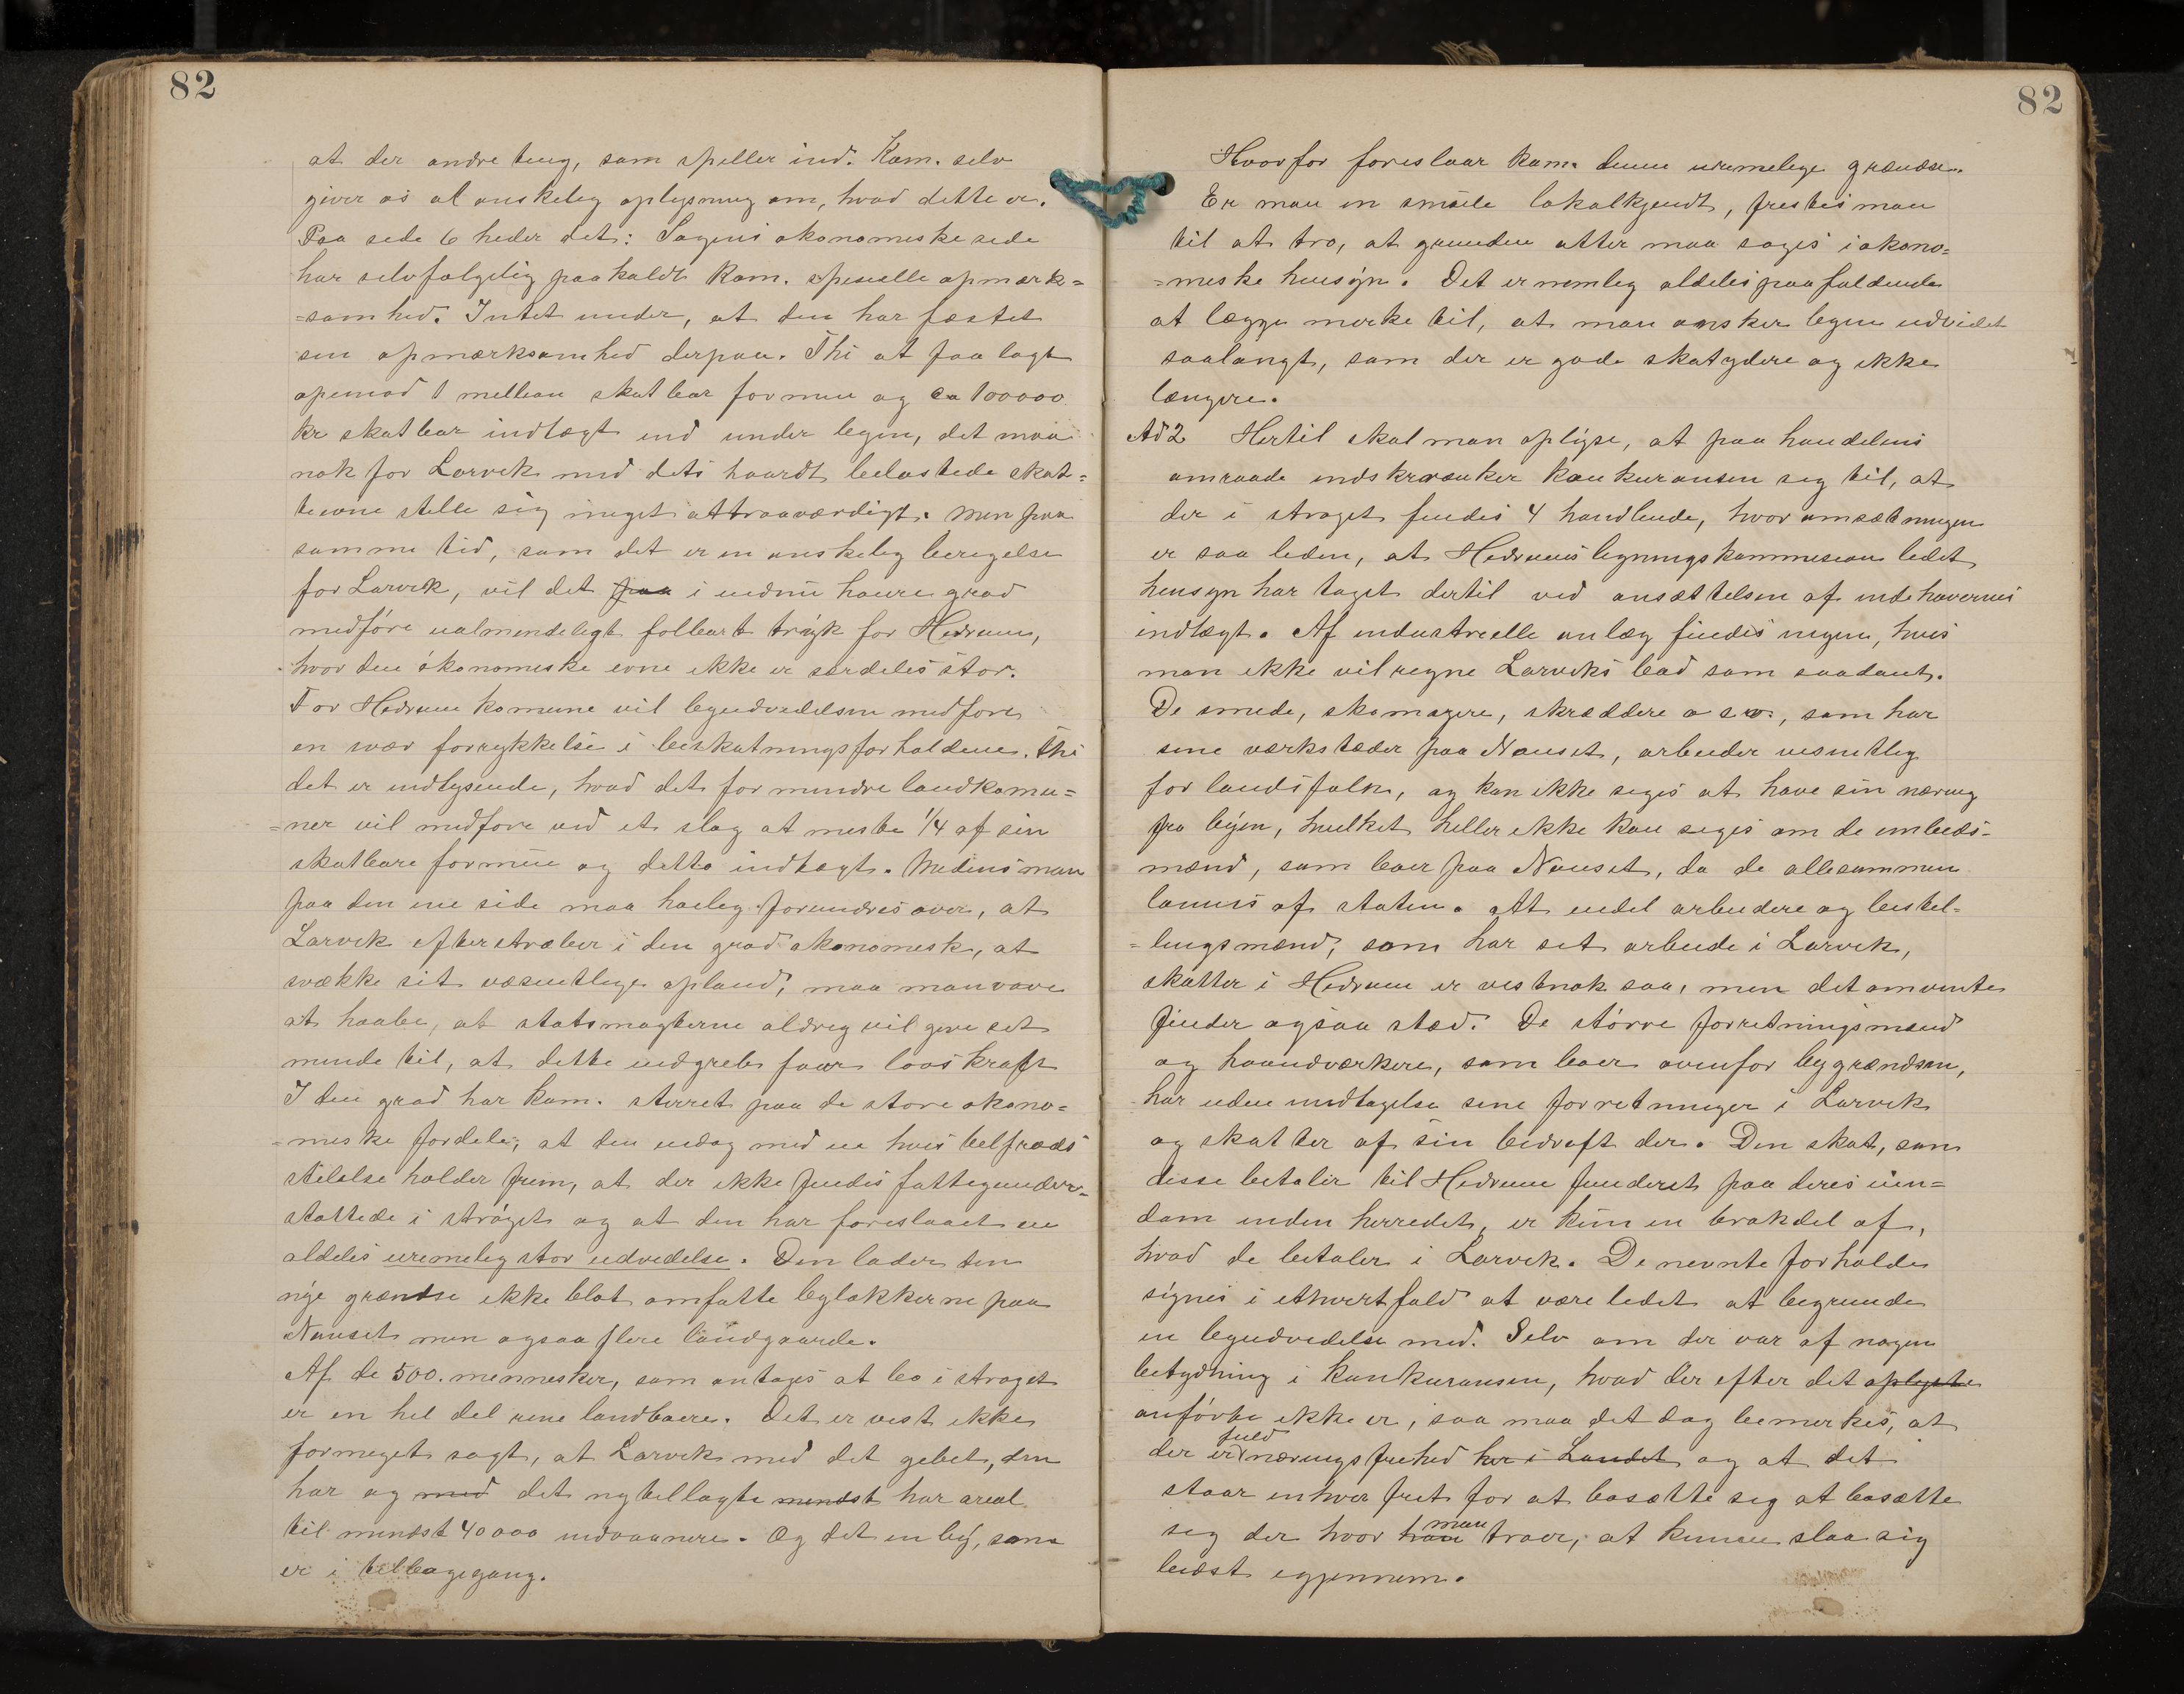 82
at der andre ting, som spiller ind. Kom. selv
giver os al ønskelig oplysning om, hvad dette er.
Paa side 6 heder det: Sagens økonomiske side
har selvfølgelig paakaldt Kom. specielle opmærk=
=somhed. Intet under, at den har fæstet
sin opmærksomhed derpaa. Thi at faa lagt
openmod 1 million skatbar formue og ca 100000
kr skatbar indtægt ind under byen, det maa
nok for Larvik med dets haardt belastede skat=
teevne stille sig meget attraaværdigt. Men paa
samme tid, som det er en ønskelig berigelse
for Larvik, vil det paa i endnu høiere grad
medføre ualmindeligt følbart tryk for Hedrum,
hvor den økonomiske evne ikke er særdeles stor.
For Hedrum komune vil byudvidelsen medføre
en svær forrykkelse i beskatningsforholdene. Thi
det er indlysende, hvad det for mindre landkomu=
=ner vil medføre ved et slag at miste 1/4 af sin
skatbare formue og ditto indtægt. Medens man
paa den ene side maa høilig forundres over, at
Larvik efterstræber i den grad økonomisk, at
svække sit væsentlige opland, maa man vove
at haabe, at statsmagterne aldrig vil give sit
minde til, at dette indgreb faar lovs kraft
I den grad har kom. stirret paa de store økono=
=miske fordele, at den endog med en hvis tilfreds
stilelse holder frem, at der ikke findes fattigunder=
støttede i strøget og at den har foreslaaet en
aldeles urimelig stor udvidelse. Den lader den
nye grændse ikke blot omfatte byløkkerne paa
Nanset men ogsaa flere landgaarde.
Af de 500. mennesker, som antages at bo i strøget
er en hel del rene landboere. Det er vist ikke
formeget sagt, at Larvik med det gebet, den
har og med det nytillagte mindst har areal
til mindst 40000 indvaanere. Og det en by, som
er i tilbagegang.
82
Hvorfor foreslaar kom. denne urimelige grændse.
Er man en smule lokalkjendt, fristes man
til at tro, at grunden atter maa søges i økono=
=miske hensyn. Det er nemlig aldeles paafaldende
at lægge merke til, at man ønsker byen udvidet
saalangt, som der er gode skatydere og ikke
længere.
Ad 2 Hertil skal man oplyse, at paa handelens
omraade indskrænker konkuransen sig til, at
der i strøget findes 4 handlende, hvor omsætningen
er saa liden, at Hedrums ligningskommission lidet
hensyn har taget dertil ved ansættelsen af indehavernes
indtægt. Af industrielle anlæg findes ingen, hvis
man ikke vil regne Larviks bad som saadant.
De smede, skomagere, skræddere o s v., som har
sine værksteder paa Nanset, arbeider vesentlig
for landsfolk, og kan ikke siges at have sin næring
fra byen, hvilket heller ikke kan siges om de embeds-
mænd, som boer paa Nanset, da de allesammen
lønnes af staten. Att endel arbeidere og bestil-
=lingsmænd, som har sit arbeide i Larvik,
skatter i Hedrum er vistnok saa, men det omvente
finder ogsaa sted. De større forretningsmænd
og haandværkere, som boer ovenfor bygrændsen,
har uden undtagelse sine forretninger i Larvik
og skatter af sin bedrift der. Den skat, som
disse betaler til Hedrum funderet paa deres eien=
dom inden herredet, er kun en brøkdel af,
hvad de betaler i Larvik. De nevnte forholde
synes i ethvertfald at være lidet at begrunde
en byudvidelse med. Selv om der var af nogen
betydning i konkuransen, hvad der efter det oplyste
anførte ikke er, saa maa det dog bemerkes, at
der er fuld næringsfrihed her i Landet og at det
staar enhver frit for at bosætte sig at bosætte
sig der hvor han man troer, at kunne slaa sig
bedst igjennem.